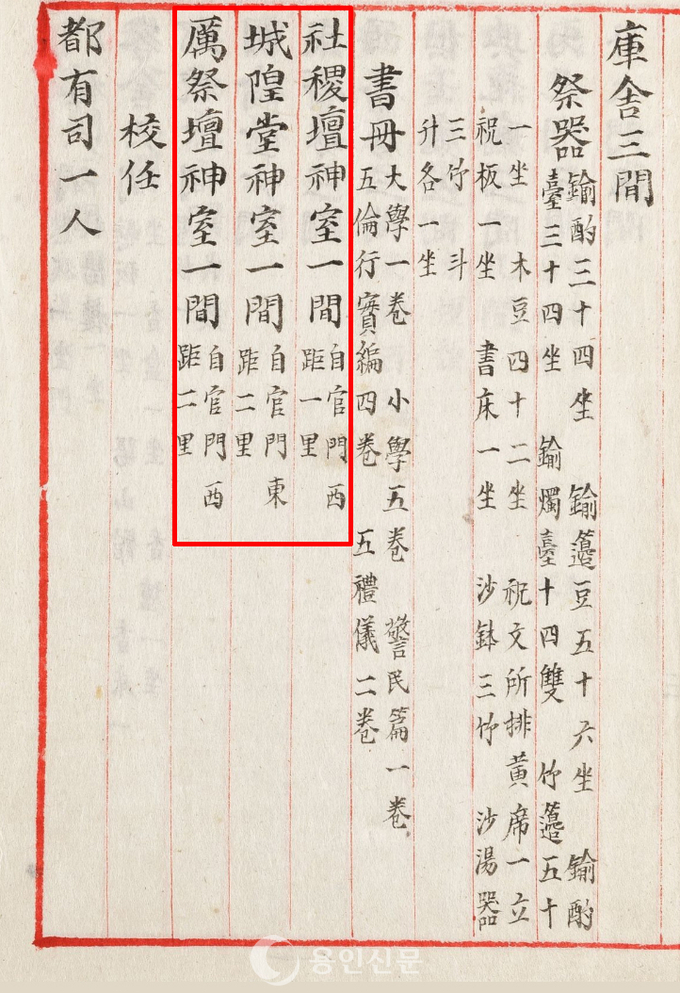 庫舍三間
祭器 鍮酌三十四坐 鍮籩豆五十六坐 鍮酌
臺三十四坐 鍮燭臺十四雙 竹籩五十
一坐 木豆四十二坐 祝文所排黃席一立
祝板一坐 書床一坐 沙鉢三竹 沙湯器
三竹 斗
升各一坐
書冊 大學一卷 小學五卷 警民篇一卷
五倫行實編四卷 五禮儀二卷
社稷壇神室一間 自官門西
距一里
城隍堂神室一間 自官門東
距二里
厲祭壇神室一間 自官門西
距二里
校任
都有司一人
용인신문